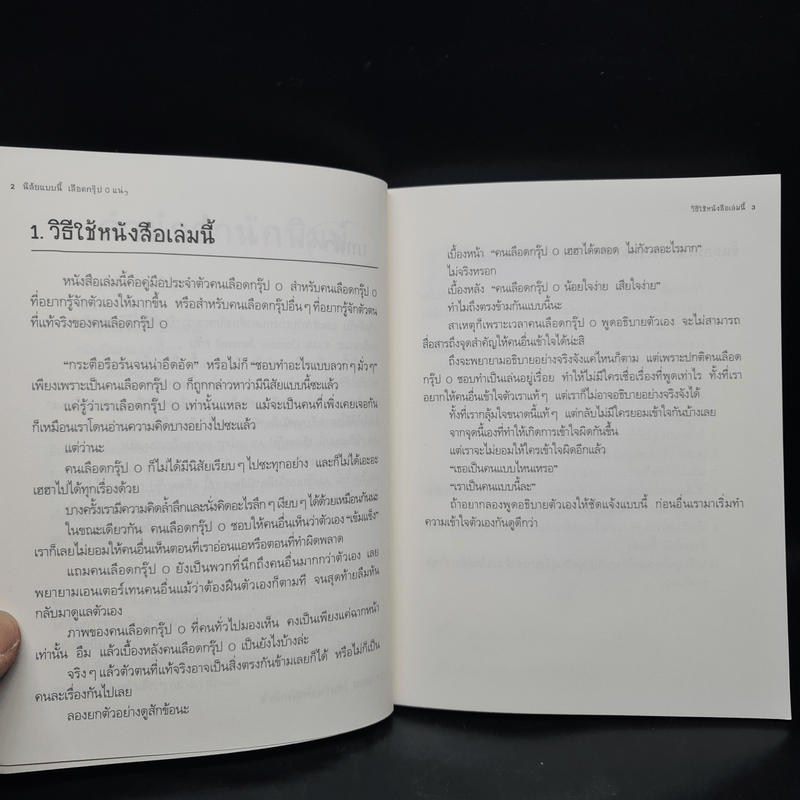 2 นิสัยแบบนี้ เลือดกรุ๊ป O แน่ๆ
1. วิธีใช้หนังสือเล่มนี้
หนังสือเล่มนี้คือคู่มือประจำตัวคนเลือดกรุ๊ป O สำหรับคนเลือดกรุ๊ป O
ที่อยากรู้จักตัวเองให้มากขึ้น หรือสำหรับคนเลือดกรุ๊ปอื่นๆ ที่อยากรู้จักตัวตน
ที่แท้จริงของคนเลือดกรุ๊ป O
"กระตือรือร้นจนน่าอึดอัด" หรือไม่ก็ "ชอบทำอะไรแบบลวกๆ มั่วๆ"
เพียงเพราะเป็นคนเลือดกรุ๊ป O ก็ถูกกล่าวหาว่ามีนิสัยแบบนี้ซะแล้ว
แค่รู้ว่าเราเลือดกรุ๊ป O เท่านั้นแหละ แม้จะเป็นคนที่เพิ่งเคยเจอกัน
ก็เหมือนเราโดนอ่านความคิดบางอย่างไปซะแล้ว
แต่ว่านะ
คนเลือดกรุ๊ป O ก็ไม่ได้มีนิสัยเรียบๆ ไปซะทุกอย่าง และก็ไม่ได้เอะอะ
เฮฮาไปได้ทุกเรื่องด้วย
บางครั้งเรามีความคิดล้ำลึกและนั่งคิดอะไรลึกๆ เงียบๆ ได้ด้วยเหมือนกันนะ
ในขณะเดียวกัน คนเลือดกรุ๊ป O ชอบให้คนอื่นเห็นว่าตัวเอง "เข้มแข็ง"
เราก็เลยไม่ยอมให้คนอื่นเห็นตอนที่เราอ่อนแอหรือตอนที่ทำผิดพลาด
แถมคนเลือดกรุ๊ป O ยังเป็นพวกที่นึกถึงคนอื่นมากกว่าตัวเอง เลย
พยายามเอนเตอร์เทนคนอื่นแม้ว่าต้องฝืนตัวเองก็ตามที จนสุดท้ายลืมหัน
กลับมาดูแลตัวเอง
ภาพของคนเลือดกรุ๊ป O ที่คนทั่วไปมองเห็น คงเป็นเพียงแค่ฉากหน้า
เท่านั้น อืม แล้วเบื้องหลังคนเลือดกรุ๊ป O เป็นยังไงบ้างล่ะ
จริงๆ แล้วตัวตนที่แท้จริงอาจเป็นสิ่งตรงกันข้ามเลยก็ได้ หรือไม่ก็เป็น
คนละเรื่องกันไปเลย
ลองยกตัวอย่างดูสักข้อนะ
วิธีใช้หนังสือเล่มนี้ 3
เบื้องหน้า "คนเลือดกรุ๊ป O เฮฮาได้ตลอด ไม่กังวลอะไรมาก"
ไม่จริงหรอก
เบื้องหลัง "คนเลือดกรุ๊ป O น้อยใจง่าย เสียใจง่าย"
ทำไมถึงตรงข้ามกันแบบนี้นะ
สาเหตุก็เพราะเวลาคนเลือดกรุ๊ป O พูดอธิบายตัวเอง จะไม่สามารถ
สื่อสารถึงจุดสำคัญให้คนอื่นเข้าใจได้น่ะสิ
ถึงจะพยายามอธิบายอย่างจริงจังแค่ไหนก็ตาม แต่เพราะปกติคนเลือด
กรุ๊ป O ชอบทำเป็นเล่นอยู่เรื่อย ทำให้ไม่มีใครเชื่อเรื่องที่พูดเท่าไร ทั้งที่เรา
อยากให้คนอื่นเข้าใจตัวเราแท้ๆ แต่เราก็ไม่อาจอธิบายอย่างจริงจังได้
ทั้งที่เรากลุ้มใจขนาดนี้แท้ๆ แต่กลับไม่มีใครยอมเข้าใจกันบ้างเลย
จากจุดนี้เองที่ทำให้เกิดการเข้าใจผิดกันขึ้น
แต่เราจะไม่ยอมให้ใครเข้าใจผิดอีกแล้ว
"เธอเป็นคนแบบไหนเหรอ"
"เราเป็นคนแบบนี้ละ"
ถ้าอยากลองพูดอธิบายตัวเองให้ชัดแจ้งแบบนี้ ก่อนอื่นเรามาเริ่มทำ
ความเข้าใจตัวเองกันดูดีกว่า